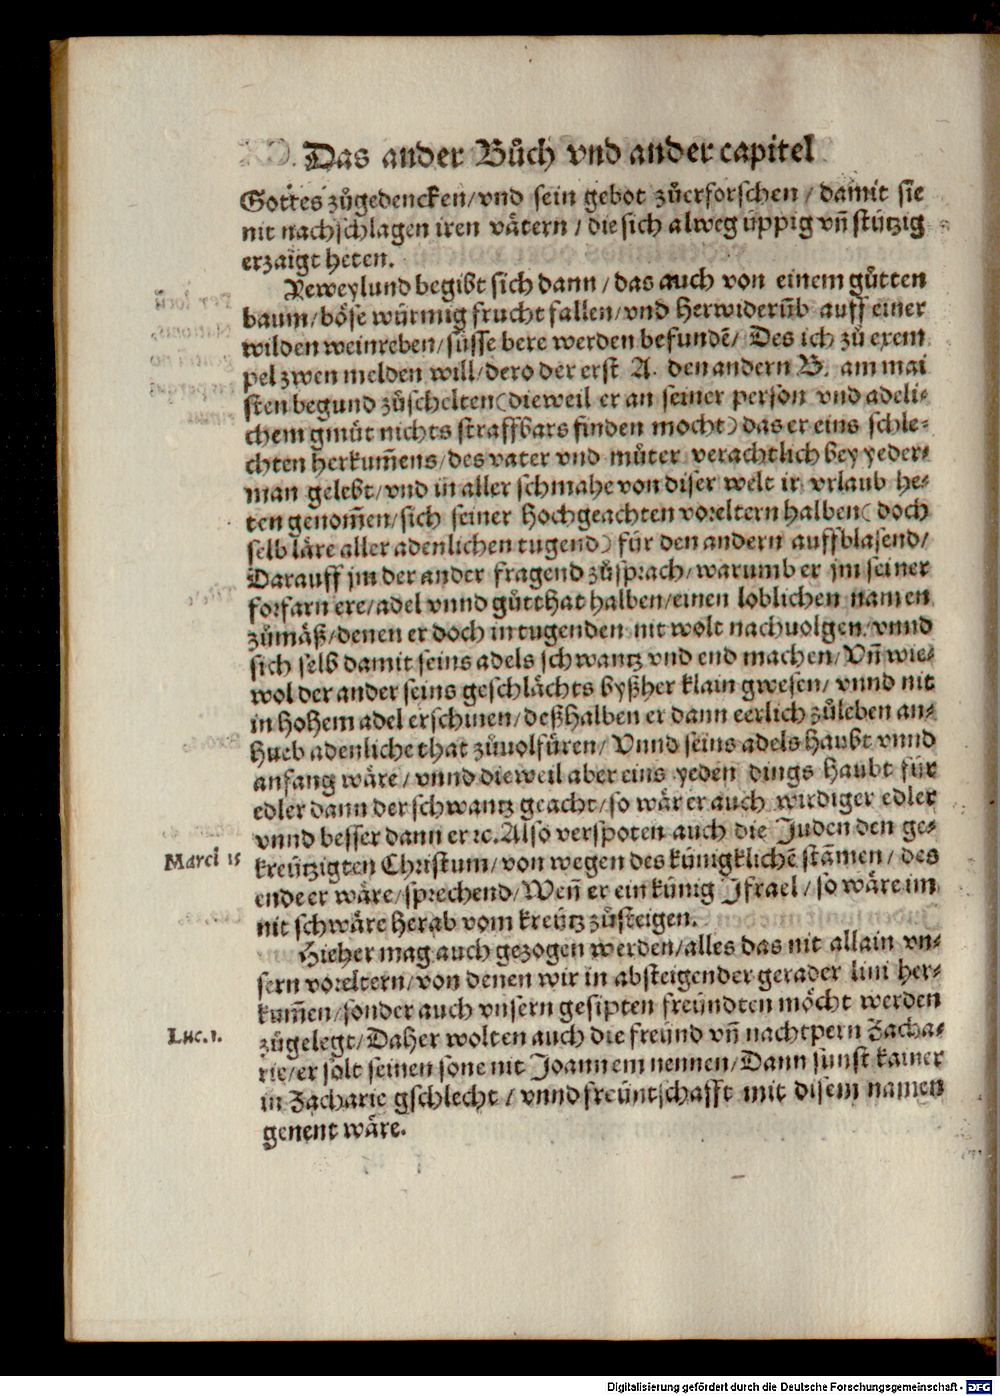 Das ander Bůch vnd ander capitel
Gottes zůgedencken/vnd sein gebot zůerforschen/damit sie
nit nachschlagen iren vätern/die sich alweg üppig vñ stützig
erzaigt heten.
Peweylund begibt sich dann/das auch von einem gůtten
baum/böse würmig frucht fallen/vnd herwiderũb auff einer
wilden weinreben/süsse bere werden befundẽ/Des ich zů exem
pel zwen melden will/dero der erst A. den andern B. am mai
sten begund zůschelten(dieweil er an seiner person vnd adeli-
chem gmüt nichts straffbars finden mocht)das er eins schle-
chten herkum̃ens/des vater vnd můter verachtlich bey yeder-
man gelebt/vnd in aller schmahe von diser welt ir vrlaub he-
ten genom̃en/sich seiner hochgeachten voreltern halben(doch
selb läre aller adenlichen tugend)für den andern auffblasend/
Darauff jm der ander fragend zůsprach/warumb er jm seiner
forfarn ere/adel vnnd gůtthat halben/einen loblichen namen
zůmäß/denen er doch in tugenden nit wolt nachuolgen/vnnd
sich selb damit seins adels schwantz vnd end machen/Vñ wie-
wol der ander seins geschlächts byßher klain gwesen/vnnd nit
in hohem adel erschinen/deßhalben er dann eerlich zůleben an-
hueb adenliche that zůuolfüren/Vnnd seins adels haubt vnnd
anfang wäre/vnnd dieweil aber eins yeden dings haubt für
edler dann der schwantz geacht/so wär er auch wirdiger edler
vnnd besser dann er ꝛc. Also verspoten auch die Juden den ge-
Marci 15
kreützigten Christum/von wegen des künigklichẽ stãmen/des
ende er wäre/sprechend/Weñ er ein künig Israel/so wäre im
nit schwäre herab vom kreütz zůsteigen.
Hieher mag auch gezogen werden/alles das nit allain vn-
sern voreltern/von denen wir in absteigender gerader lini her-
kum̃en/sonder auch vnsern gesipten freündten möcht werden
Luc. 1.
zůgelegt/Daher wolten auch die freünd vñ nachtpern Zacha-
rie/er solt seinen sone nit Joannem nennen/Dann sunst kainer
in Zacharie gschlecht/vnnd freüntschafft mit disem namen
genent wäre.
Digitalisierung gefördert durch die Deutsche Forschungsgemeinschaft - DFG